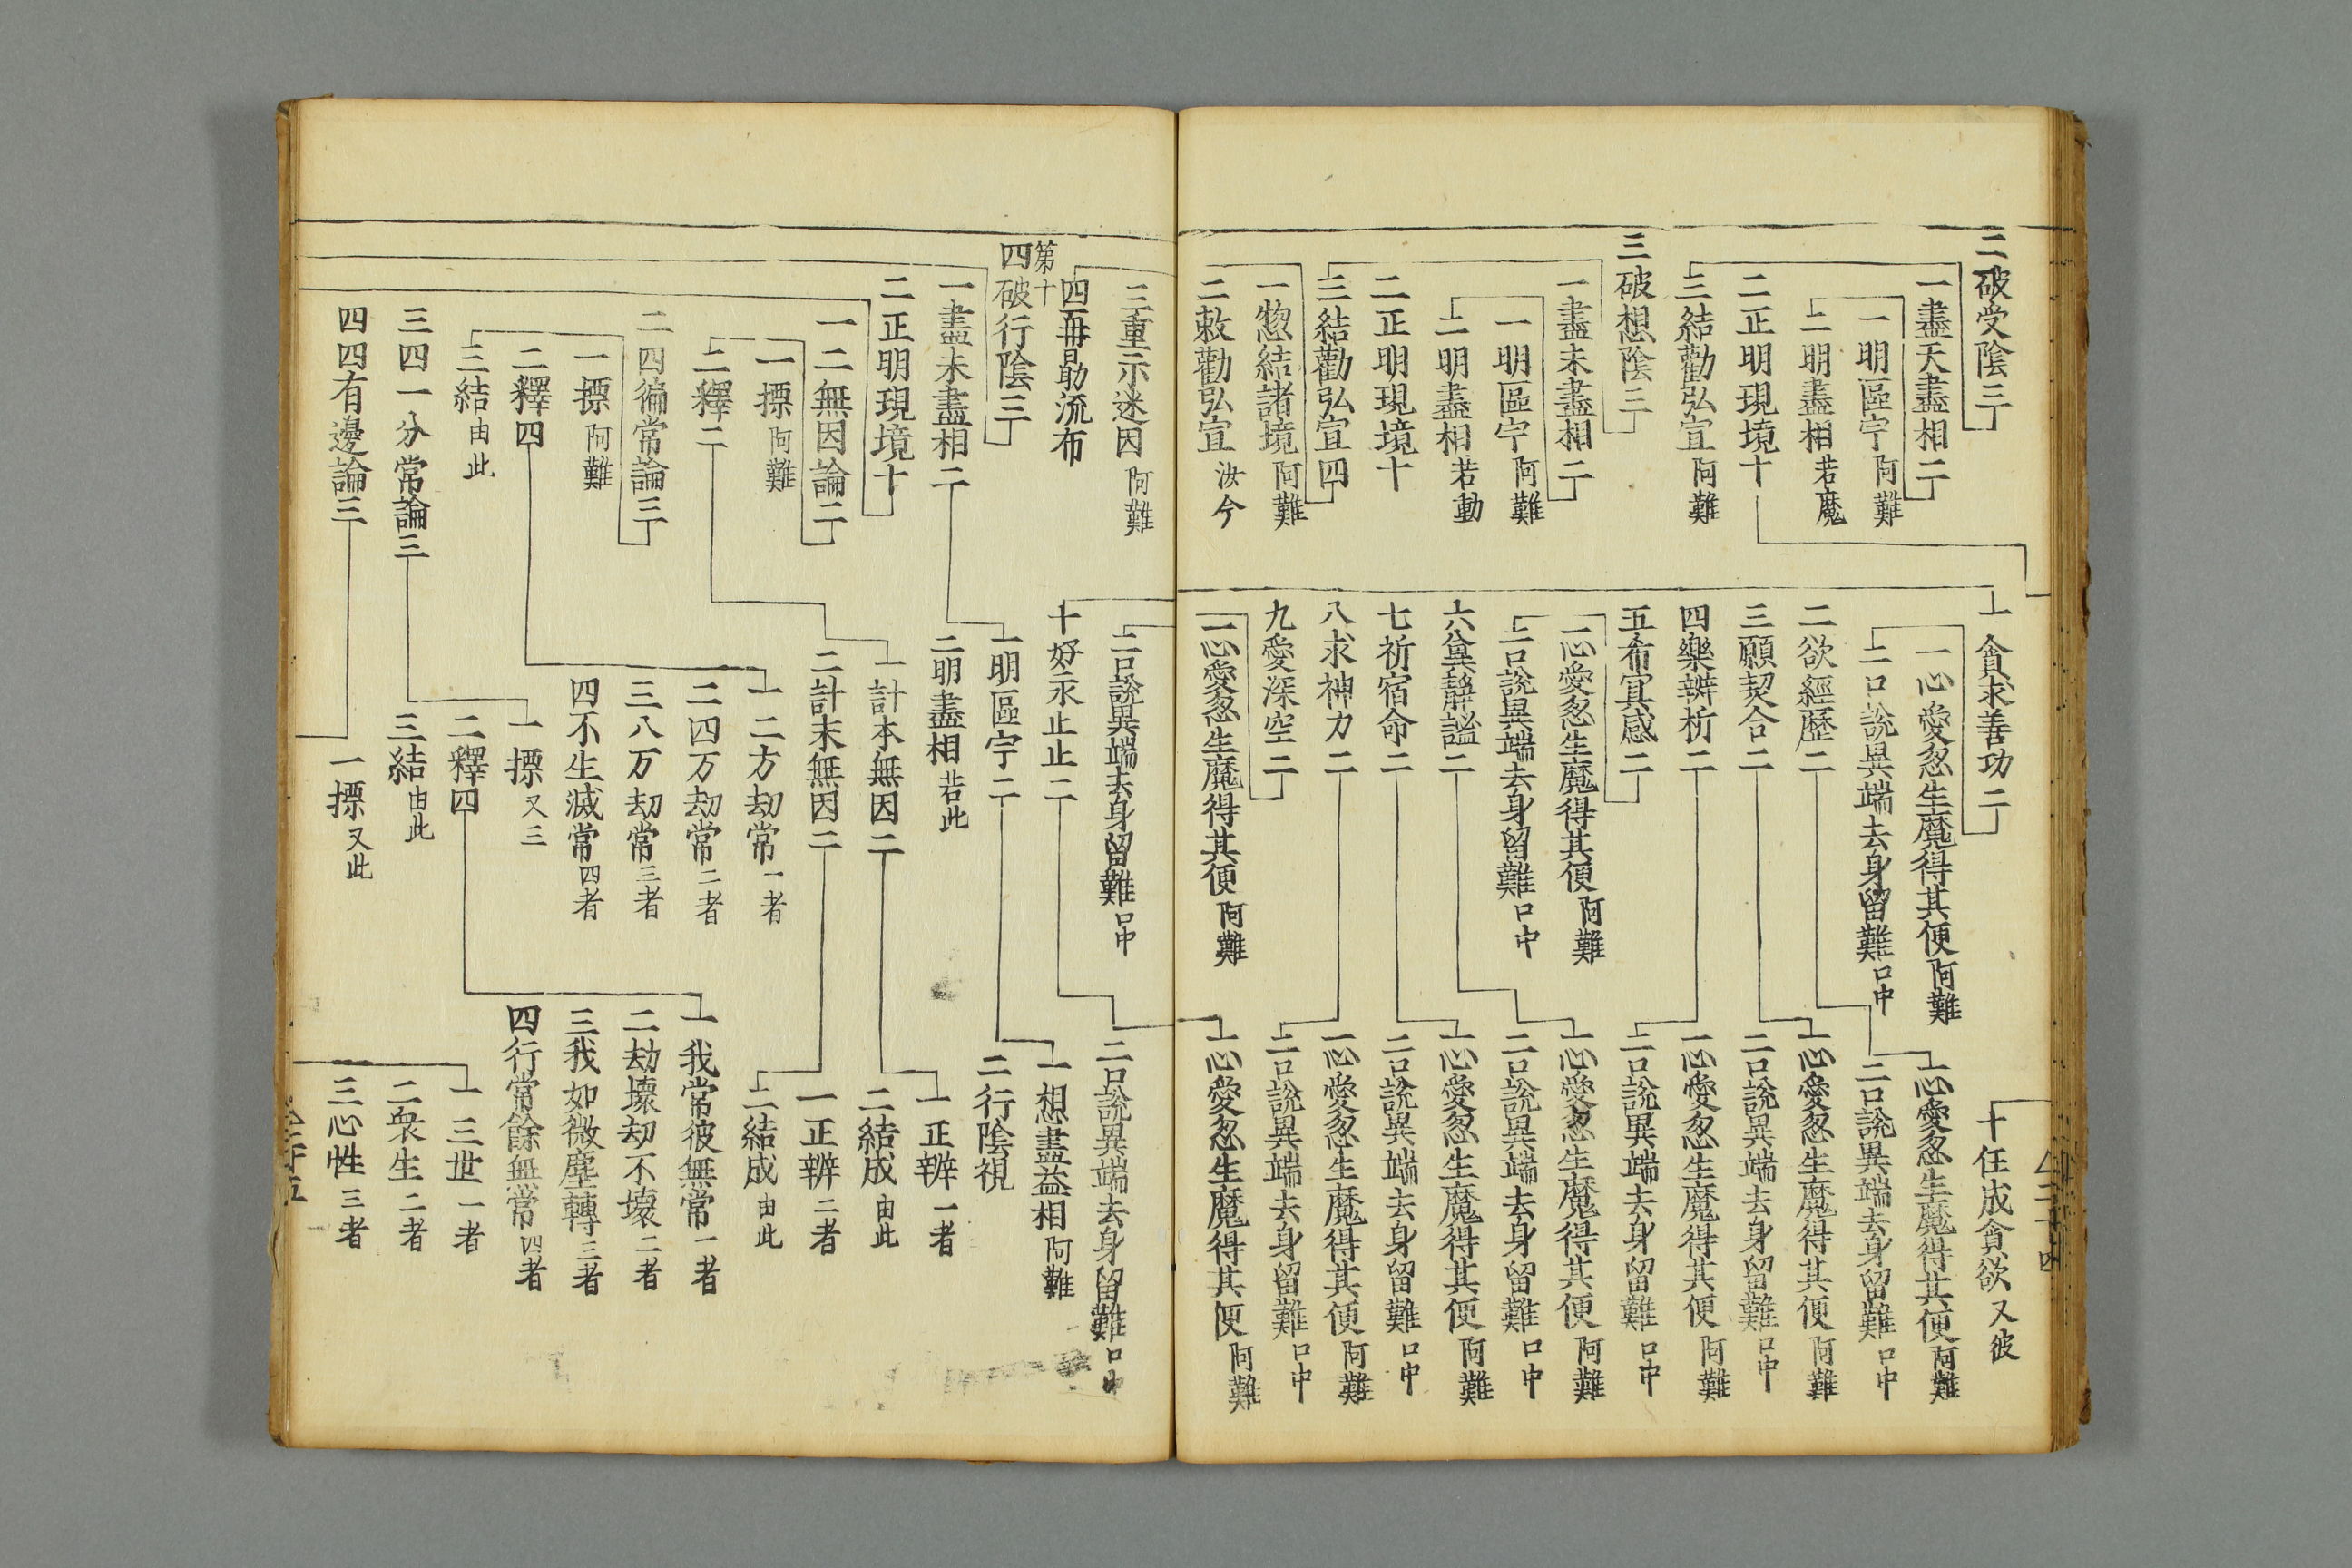 二破受陰三
一盡天盡相二
一明區宇 阿難
二明盡相 若魔
二正明現境十
三結勸弘宣 阿難
三破想陰三
一盡未盡相二
一明區宇 阿難
二明盡相 若動
二正明現境十
三結勸弘宣四
一愬結諸境 阿難
二敕勸弘宣 汝今
一貪求善功二
一心愛忽生魔得其便 阿難
二口說異端去身留難 口中
二欲經歷二
三願契合二
四樂辨析二
五希冥感二
一心愛忽生魔得其便 阿難
二口說異端去身留難 口中
六貪靜謐二
七祈宿命二
八求神力二
九愛深空二
一心愛忽生魔得其便 阿難
十任成貪欲 又彼
一心愛忽生魔得其便 阿難
二口說異端去身留難 口中
一心愛忽生魔得其便 阿難
二口說異端去身留難 口中
一心愛忽生魔得其便 阿難
二口說異端去身留難 口中
一心愛忽生魔得其便 阿難
二口說異端去身留難 口中
一心愛忽生魔得其便 阿難
二口說異端去身留難 口中
一心愛忽生魔得其便 阿難
二口說異端去身留難 口中
一心愛忽生魔得其便 阿難
三重示迷因 阿難
四再勗流布
第十
四破行陰三
一盡未盡相二
二正明現境十
一二無因論二
一摽 阿難
二釋二
二四徧常論三
一摽 阿難
二釋四
三結 由此
三四一分常論三
四四有邊論三
二口說異端去身留難 口中
十好永止止二
一明區宇二
二明盡相 若此
一計本無因二
二計末無因二
一二方劫常 一者
二四万劫常 二者
三八万劫常 三者
四不生滅常 四者
一摽 又三
二釋四
三結 由此
一摽 又此
二口說異端去身留難 口中
一想盡益相 阿難
二行陰視
一正辨 一者
二結成 由此
一正辨 二者
二結成 由此
一我常彼無常 一者
二劫壞劫不壞 二者
三我如微塵轉 三者
四行常餘無常 四者
一三世 一者
二衆生 二者
三心性 三者